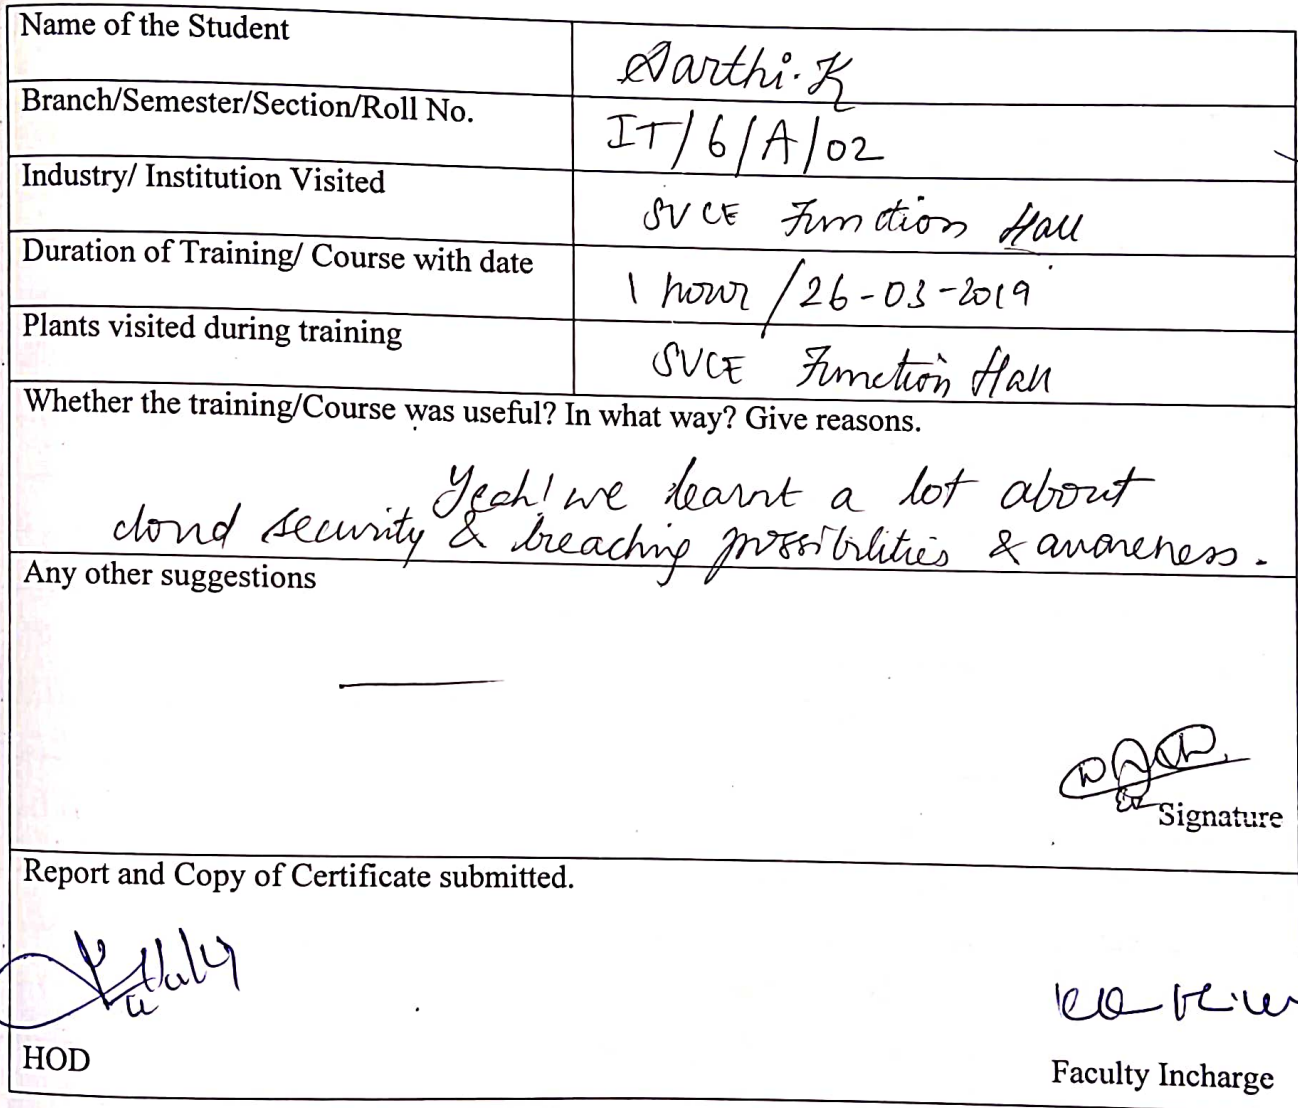 Name of the Student
Aarthi. K
Branch/Semester/Section/Roll No.
IT/6/A/02
Industry/ Institution Visited
SVCE Function Hall
Duration of Training/ Course with date
1 hour /26-03-2019
Plants visited during training
SVCE Function Hall
Whether the training/Course was useful? In what way? Give reasons.
Yeah! we learnt a lot about
cloud security & breaching possibilities & awareness.
Any other suggestions
Signature
Report and Copy of Certificate submitted.
HOD
Faculty Incharge